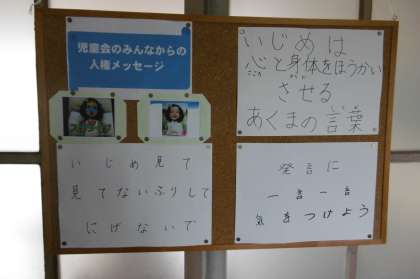 児童会のみんなからの
人権メッセージ
いじめは
心と身体をほうかい
こころ
させる
あくまの言葉
いじめ見て
見てないふりして
にげないで
発言に
一言一言
気をつけよう